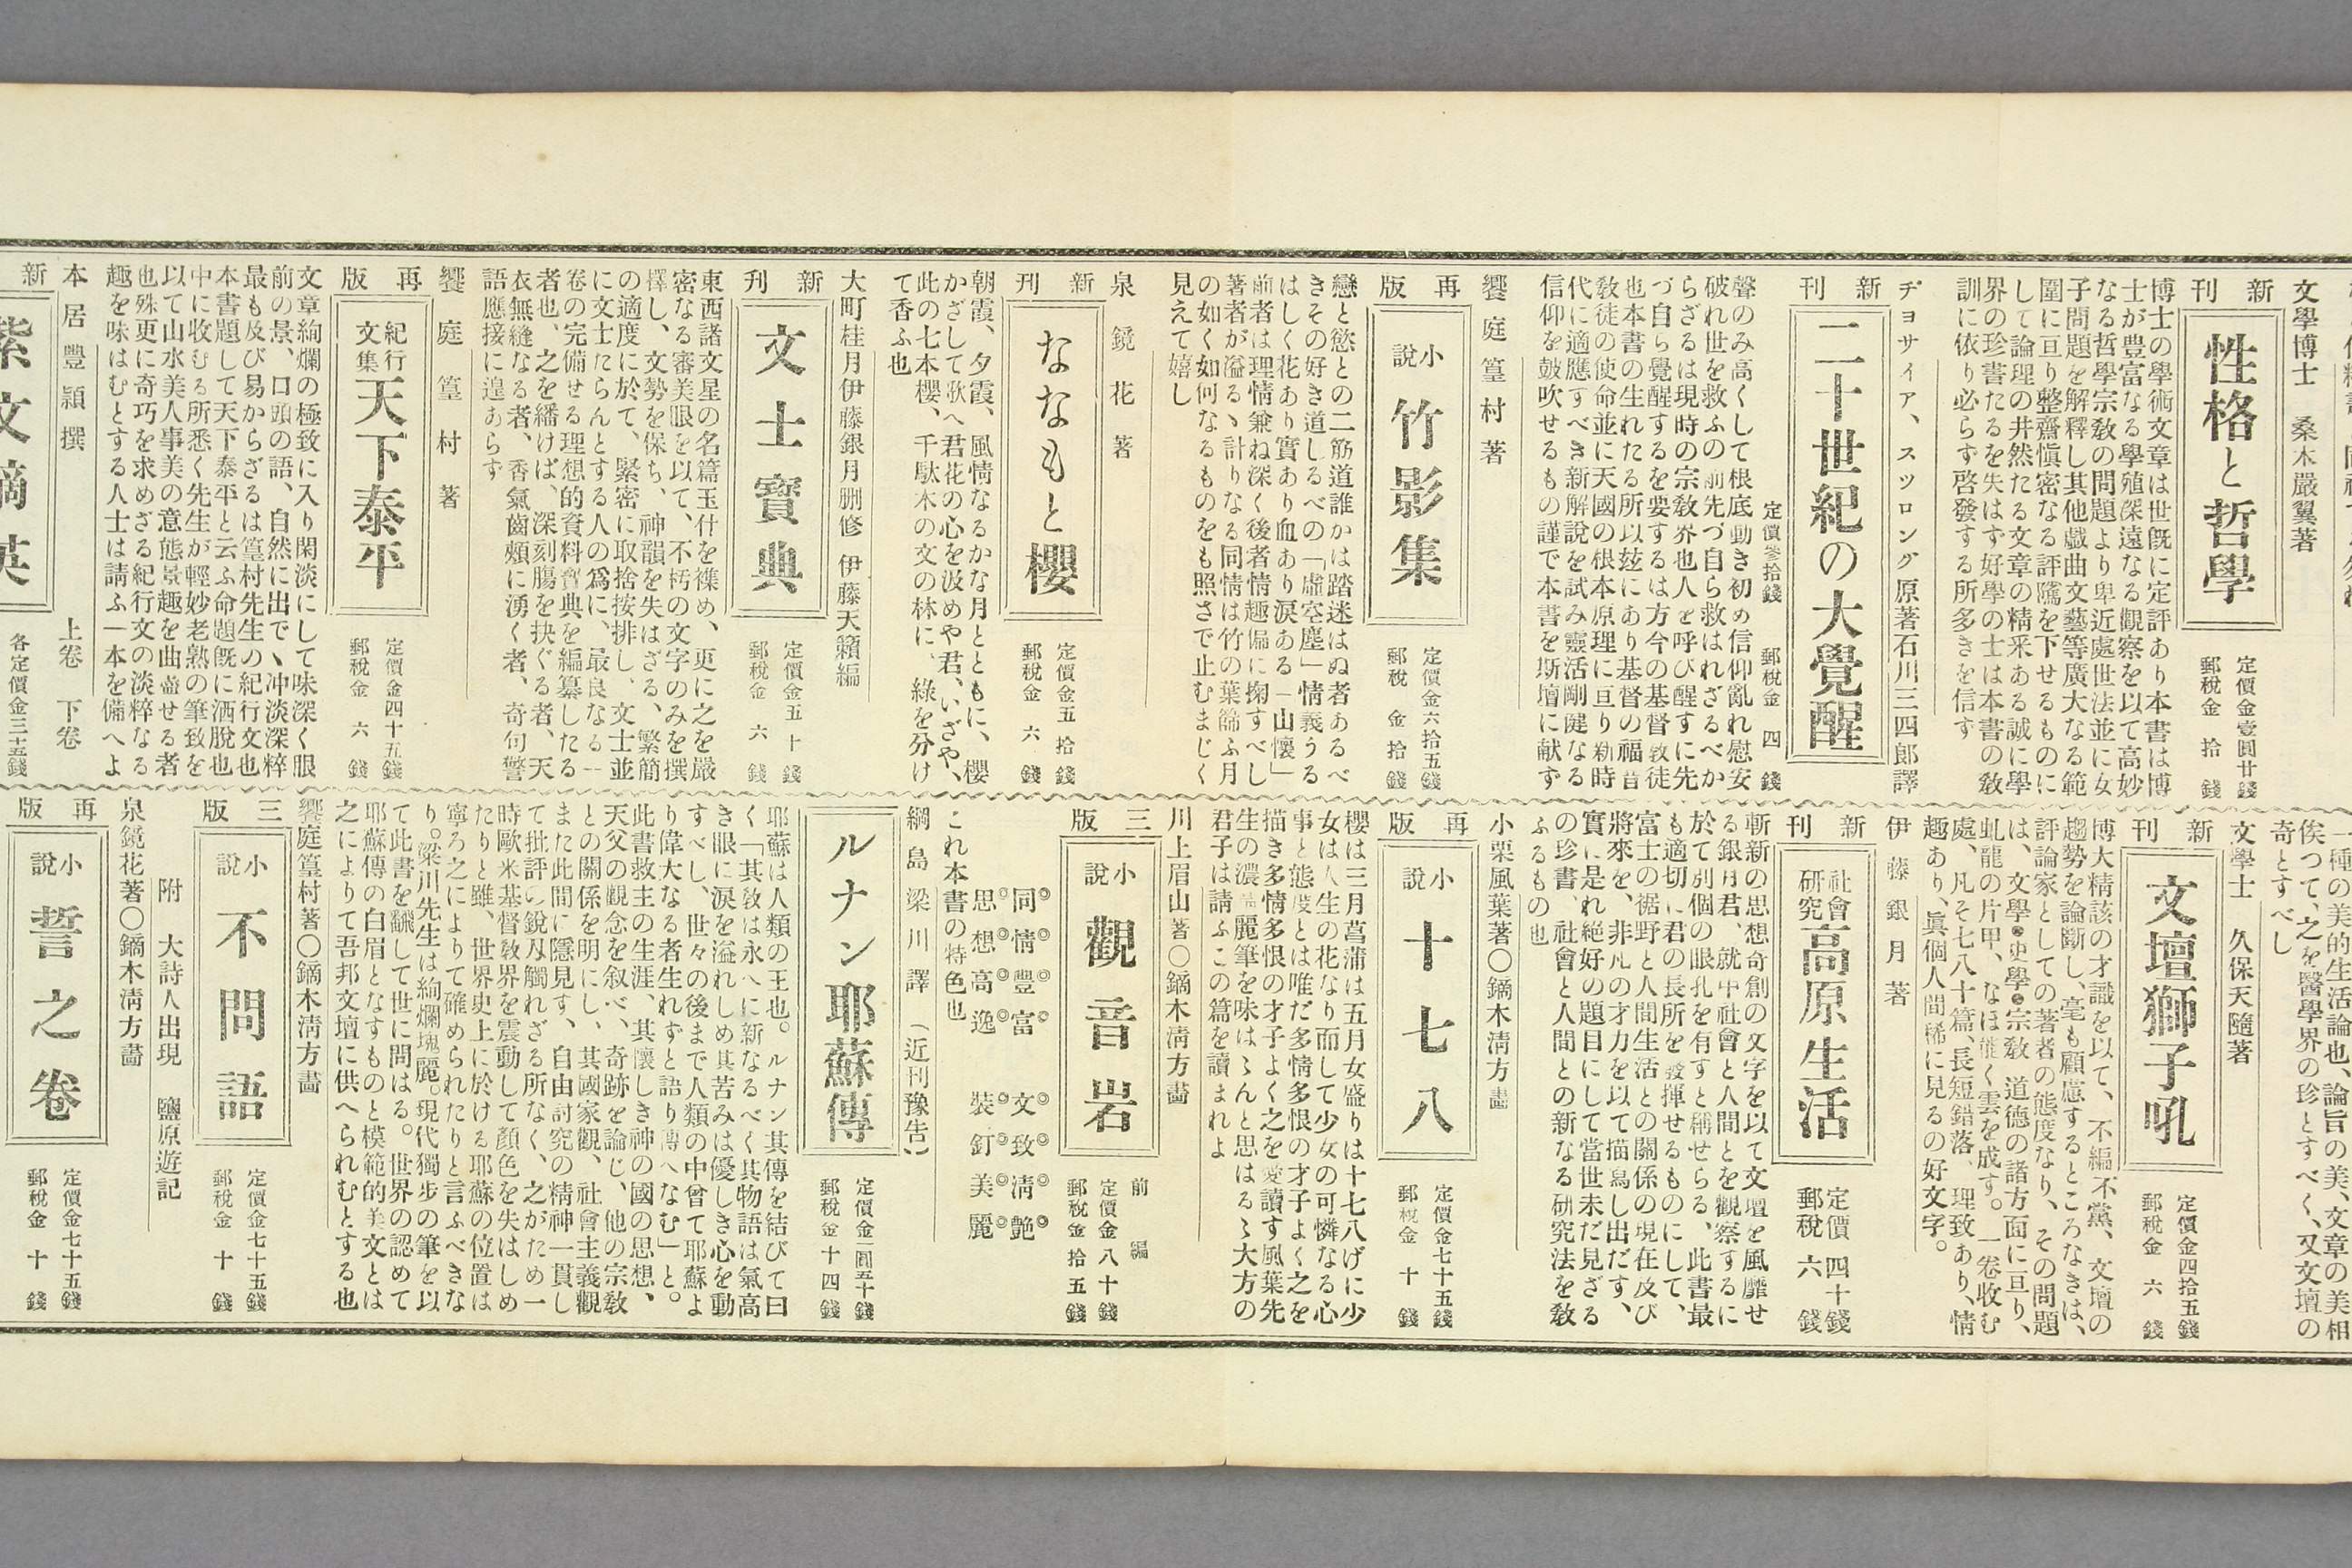 文學博士 桑木嚴翼著
新刊
性格と哲學
定價金壹圓廿錢
郵税金拾錢
博士の學術文章は世既に定評あり本書は博
士が豊富なる學殖深遠なる觀察を以て高妙
なる哲學宗敎の問題より卑近處世法並に女
子問題を解釋し其他戯曲文藝等廣大なる範
圍に亘り整齋愼密なる評隲を下せるものに
して論理の井然たる文章の精采ある誠に學
界の珍書たるを失はず好學の士は本書の敎
訓に依り必らず啓發する所多きを信す
ヂョサイア、スツロング原著石川三四郎譯
新刊
二十世紀の大覺醒
定價參拾錢 郵税金四錢
聲のみ高くして根底動き初め信仰亂れ慰安
破れ世を救ふの前先づ自ら救はれざるべか
らざるは現時の宗敎界也人を呼び醒すに先
づ自ら覺醒するを要するは方今の基督敎徒
也本書の生れたる所以玆にあり基督の福音
敎徒の使命並に天國の根本原理に亘り新時
代に適應すべき新解說を試み靈活剛健なる
信仰を鼓吹せるもの謹で本書を斯壇に献ず
饗庭篁村著
再版
小說 竹影集
定價金六拾五錢
郵税金拾錢
戀と慾との二筋道誰かは踏迷はぬ者あるべ
きその好き道しるべの「虛空塵」情義うる
はしく花あり實あり血あり淚ある「山懷」
前者は理情兼ね深く後者情趣偏に掬すべし
著者が溢るゝ計りなる同情は竹の葉篩ふ月
の如く如何なるものをも照さで止むまじく
見えて嬉し
泉鏡花著
新刊
なゝもと櫻
定價金五拾錢
郵税金六錢
朝霞、夕霞、風情なるかな月とともに、櫻
かざして歌へ君花の心を汲めや君、いざや、
此の七本櫻、千駄木の文の林に、綠を分け
て香ふ也
大町桂月伊藤銀月刪修 伊藤天籟編
新刊
文士寶典
定價金五十錢
郵税金六錢
東西諸文星の名篇玉什を襍め、更に之を嚴
密なる審美眼を以て、不朽の文字のみを撰
擇し、文勢を保ち、神韻を失はざる、繁簡
の適度に於て、緊密に取捨按排し、文士並
に文士たらんとする人の爲に、最良なる一
卷の完備せる理想的資料寶典を編纂したる
者也、之を繙けば、深刻膓を抉ぐる者、天
衣無縫なる者、香氣齒頰に湧く者、奇句警
語應接に遑あらず
饗庭篁村著
再版
紀行文集 天下泰平
定價金四十五錢
郵税金六錢
文章絢爛の極致に入り閑淡にして味深く眼
前の景、口頭の語、自然に出で、冲淡深粹
最も及び易からざるは篁村先生の紀行文也
本書題して天下泰平と云ふ命題既に洒脫也
中に收むる所悉く先生が輕妙老熟の筆致を
以て山水美人事美の意態景趣を曲盡せる者
也殊更に奇巧を求めざる紀行文の淡粹なる
趣を味はむとする人士は請ふ一本を備へよ
本居豐頴撰 上卷 下卷
新
紫文摘英
各定價金三十五錢
一種の美的生活論也、論旨の美、文章の美相
俟つて、之を醫學界の珍とすべく、又文壇の
奇とすべし
文學士 久保天隨著
新刊
文壇獅子吼
定價金四拾五錢
郵税金六錢
博大精該の才識を以て、不編不黨、文壇の
趨勢を論斷し、毫も顧慮するところなきは、
評論家としての著者の態度なり、その問題
は、文學◉史學◉宗敎、道德の諸方面に亘り、
虬龍の片甲、なほ能く雲を成す。一卷收む
處、凡そ七八十篇、長短錯落、理致あり、情
趣あり、眞個人間稀に見るの好文字。
伊藤銀月著
新刊
社會研究 高原生活
定價四十錢
郵税六錢
斬新の思想奇創の文字を以て文壇を風靡せ
る銀月君、就中社會と人間とを觀察するに
於て別個の眼孔を有すと稱せらる、此書最
も適切に君の長所を發揮せるものにして、
富士の裾野と人間生活との關係の現在及び
將來を、非凡の才力を以て描寫し出だす、
實に是れ絕好の題目にして當世未だ見ざる
の珍書、社會と人間との新なる研究法を敎
ふるもの也
小栗風葉著〇鏑木淸方畵
再版
小說 十七八
定價金七十五錢
郵税金十錢
櫻は三月菖蒲は五月女盛りは十七八げに少
女は人生の花なり而して少女の可憐なる心
事と態度とは唯だ多情多恨の才子よく之を
描き多情多恨の才子よく之を愛讀す風葉先
生の濃麗筆を味はゝんと思はるゝ大方の
君子は請ふこの篇を讀まれよ
川上眉山著〇鏑木淸方畵
三版
小說 觀音岩
前編
定價金八十錢
郵税金拾五錢
同情豐富 文致淸艶
思想高逸 裝釘美麗
これ本書の特色也
綱島梁川譯（近刊豫吿）
ルナン耶蘇傳
定價金一圓五十錢
郵税金十四錢
耶蘇は人類の王也。ルナン其傳を結びて曰
く「其敎は永へに新なるべく其物語は氣高
き眼に淚を溢れしめ其苦みは優しき心を動
すべし、世々の後まで人類の中曾て耶蘇よ
り偉大なる者生れずと語り傳へなむ」と。
此書救主の生涯、其懷しき神の國の思想、
天父の觀念を叙べ、奇跡を論じ、他の宗敎
との關係を明にし、其國家觀、社會主義觀
また此間に隱見す、自由討究の精神一貫し
て批評の銳刄觸れざる所なく、之がため一
時歐米基督敎界を震動して顏色を失はしめ
たりと雖、世界史上に於ける耶蘇の位置は
寧ろ之によりて確められたりと言ふべきな
り。梁川先生は絢爛瑰麗。現代獨步の筆を以
て此書を飜して世に問はる。世界の認めて
耶蘇傳の白眉となすものと模範的美文とは
之によりて吾邦文壇に供へられむとする也
饗庭篁村著〇鏑木淸方畵
三版
小說 不問語
定價金七十五錢
郵税金十錢
附 大詩人出現 鹽原遊記
泉鏡花著〇鏑木淸方畵
再版
小說 誓之卷
定價金七十五錢
郵税金十錢